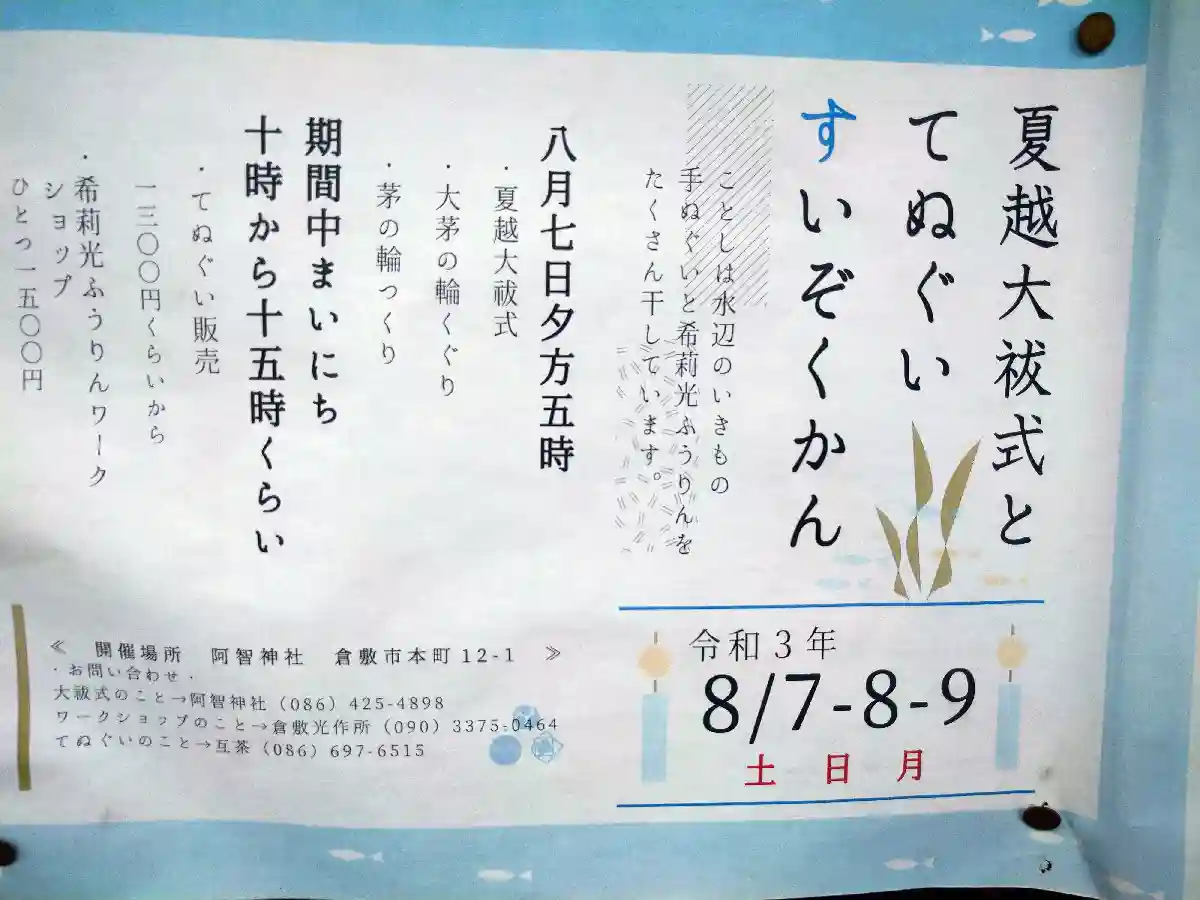 夏越大祓式と
てぬぐい
すいぞくかん
ことしは水辺のいきもの
手ぬぐいと希莉光ふうりんを
たくさん干しています。
八月七日夕方五時
・夏越大祓式
・大茅の輪くぐり
・茅の輪つくり
期間中まいにち
十時から十五時くらい
・てぬぐい販売
一三〇〇円くらいから
・希莉光ふうりんワーク
ショップ
ひとつ一五〇〇円
令和3年
8/7-8-9
土 日 月
≪ 開催場所 阿智神社 倉敷市本町12-1 ≫
・お問い合わせ・
大祓式のこと→阿智神社(086)425-4898
ワークショップのこと→倉敷光作所(090)3375-0464
てぬぐいのこと→互茶(086)697-6515